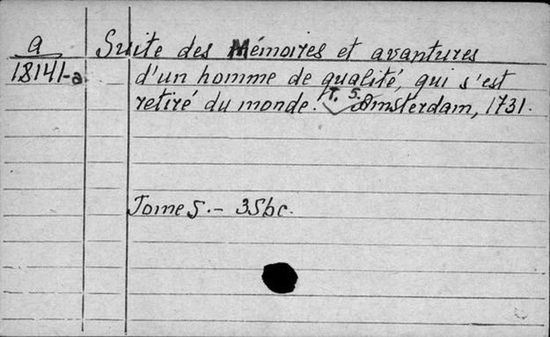 a Suite des Mémoires et avantures
18141-a d'un homme de qualité, qui s'est
retiré du monde. T. 5. Amsterdam, 1731.
Tome 5. - 356c.